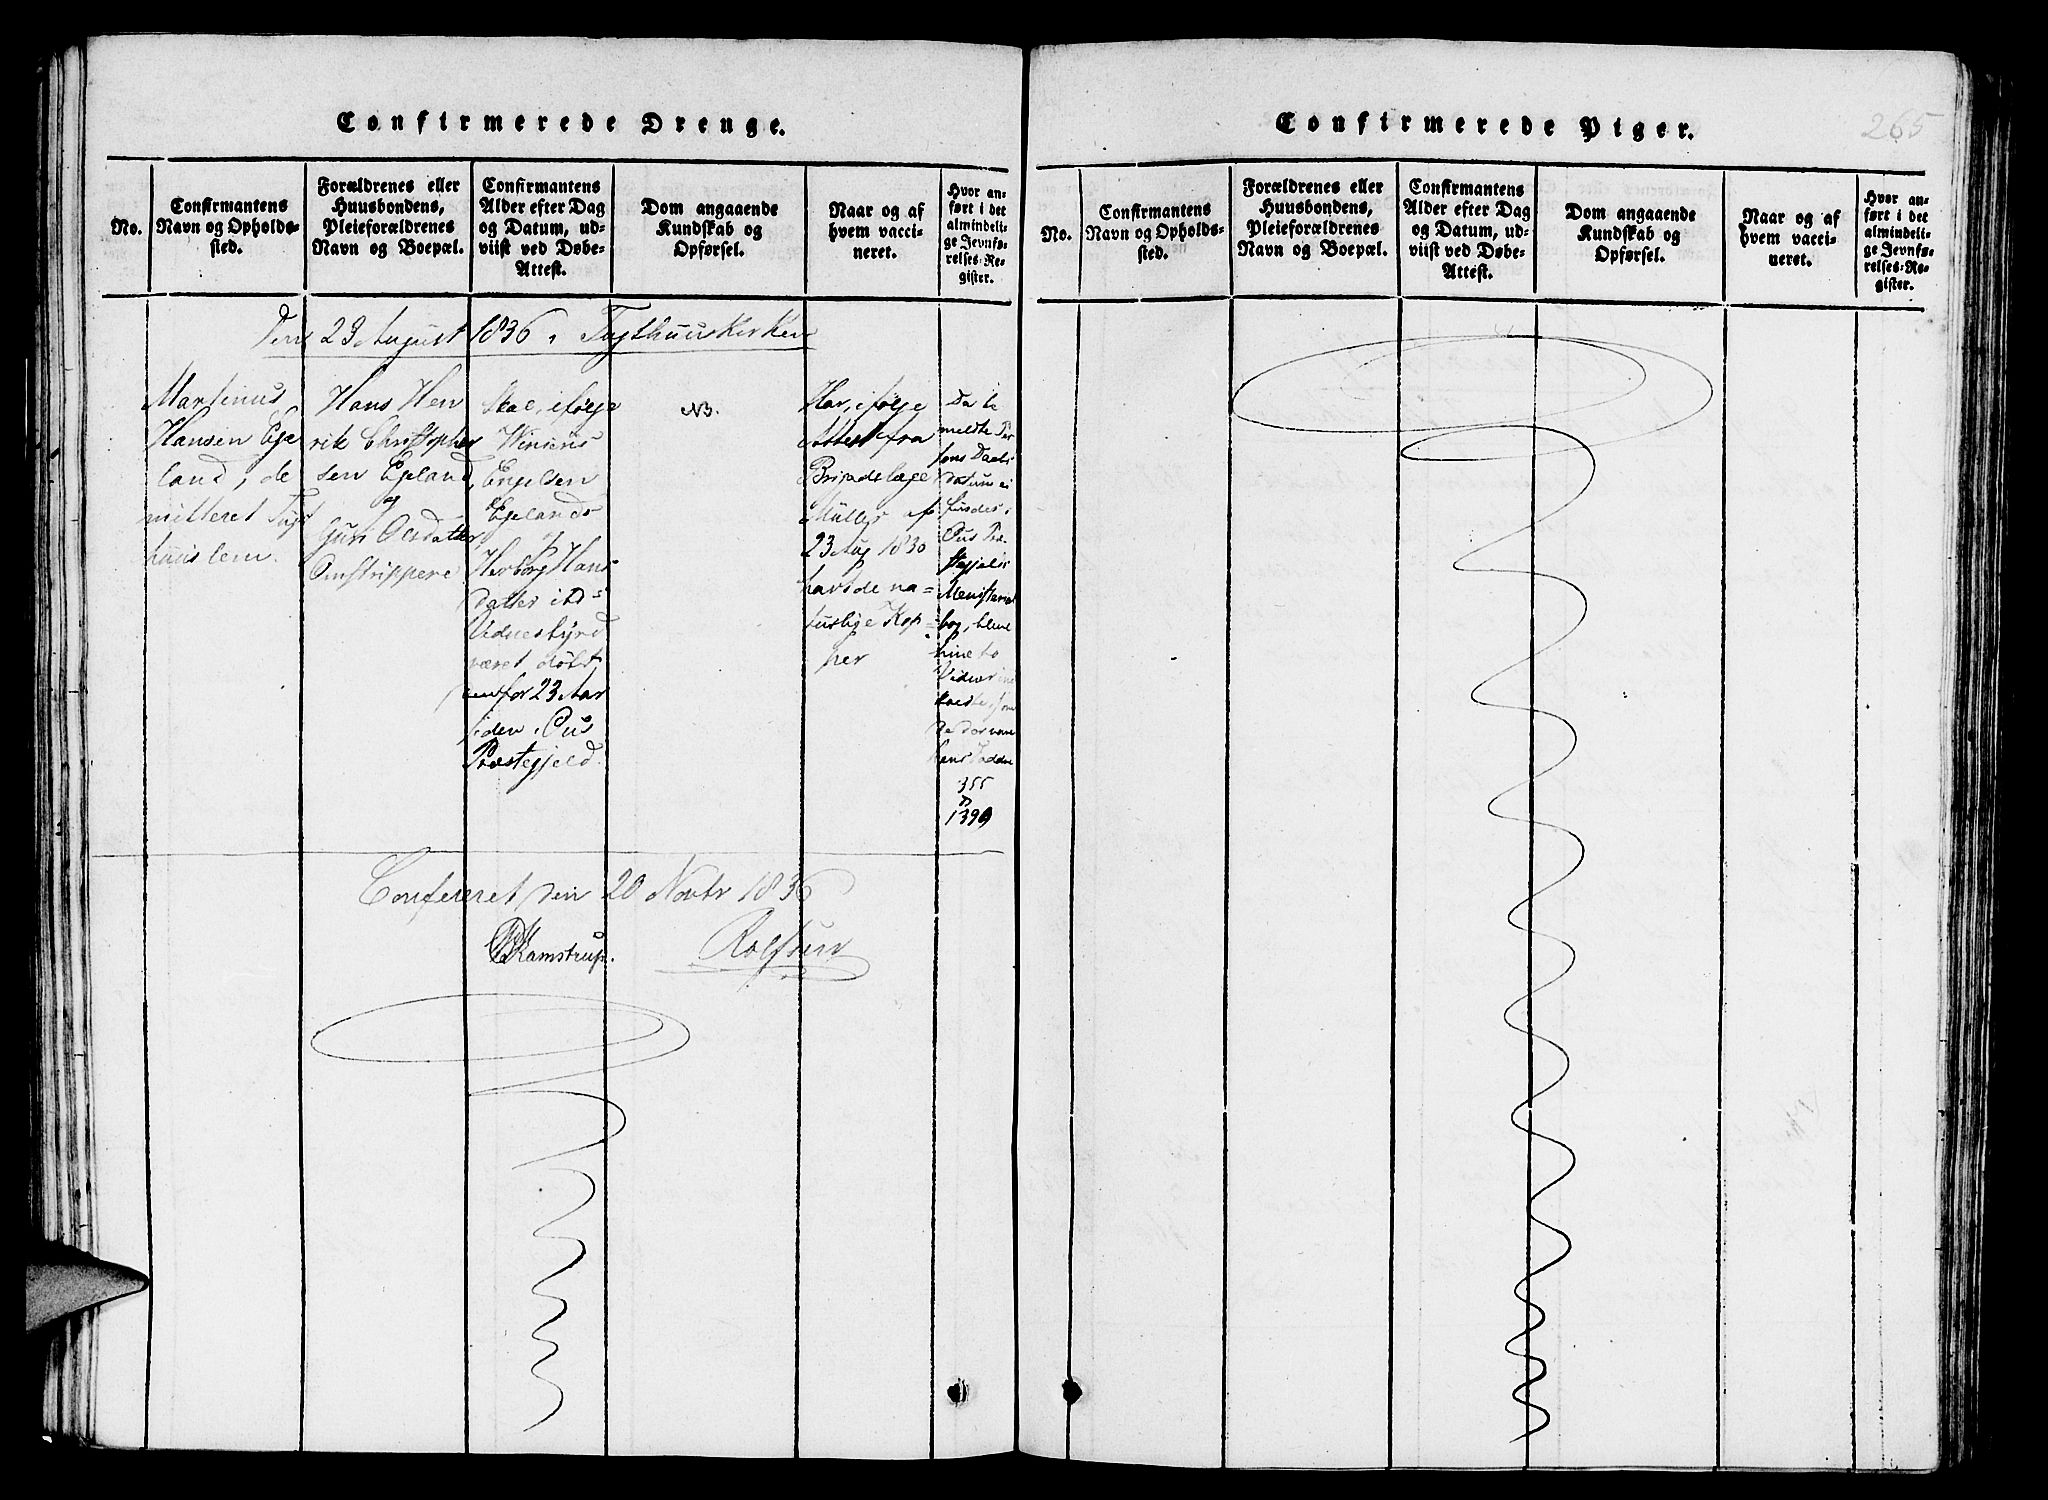 Confirmerede Drenge.
No.
Confirmantens
Navn og Opholds-
sted.
Forældrenes eller
Huusbondens,
Pleieforældrenes
Navn og Boepæl.
Confirmantens
Alder efter Dag
og Datum, ud-
viist ved Døbe-
Attest.
Dom angaaende
Kundskab og
Opførsel.
Naar og af
hvem vacci-
neret.
Hvor an-
ført i det
almindeli-
ge Jevnfø-
relses-Re-
gister.
Den 23 August 1836 i Tugthuuskirken
Martinus
Hansen Ege
land, de
mitteret Tugt
huuslem.
Hans Hen
rik Christopher
sen Egeland
og
Guri Olsdatter
Omstrippere
Skal, ifølge
Engelsen
Egelands
og
Herborg Hans
datter
Vidnesbyrd
været døbt
for 23 Aar
siden i Ous
Præstegjeld.
NB.
Har, ifølge
Attest fra
Brigadelæge
Müller af
23 Aug 1830
havt de na=
turlige Kop=
per
Da be
meldte Per
sons Daabs
datum ei
findes i
Ous Præ
stegjelds
Ministerial
bog, bleve
hine to
Vidner ind
som
355
1399
Confereret den 20 Novbr 1836
Kamstrup.
Rolfsen
Confirmerede Piger.
265
No.
Confirmantens
Navn og Opholds-
sted.
Forældrenes eller
Huusbondens,
Pleieforældrenes
Navn og Boepæl.
Confirmantens
Alder efter Dag
og Datum, ud-
viist ved Døbe-
Attest.
Dom angaaende
Kundskab og
Opførsel.
Naar og af
hvem vacci-
neret.
Hvor an-
ført i det
almindeli-
ge Jevnfø-
relses-Re-
gister.